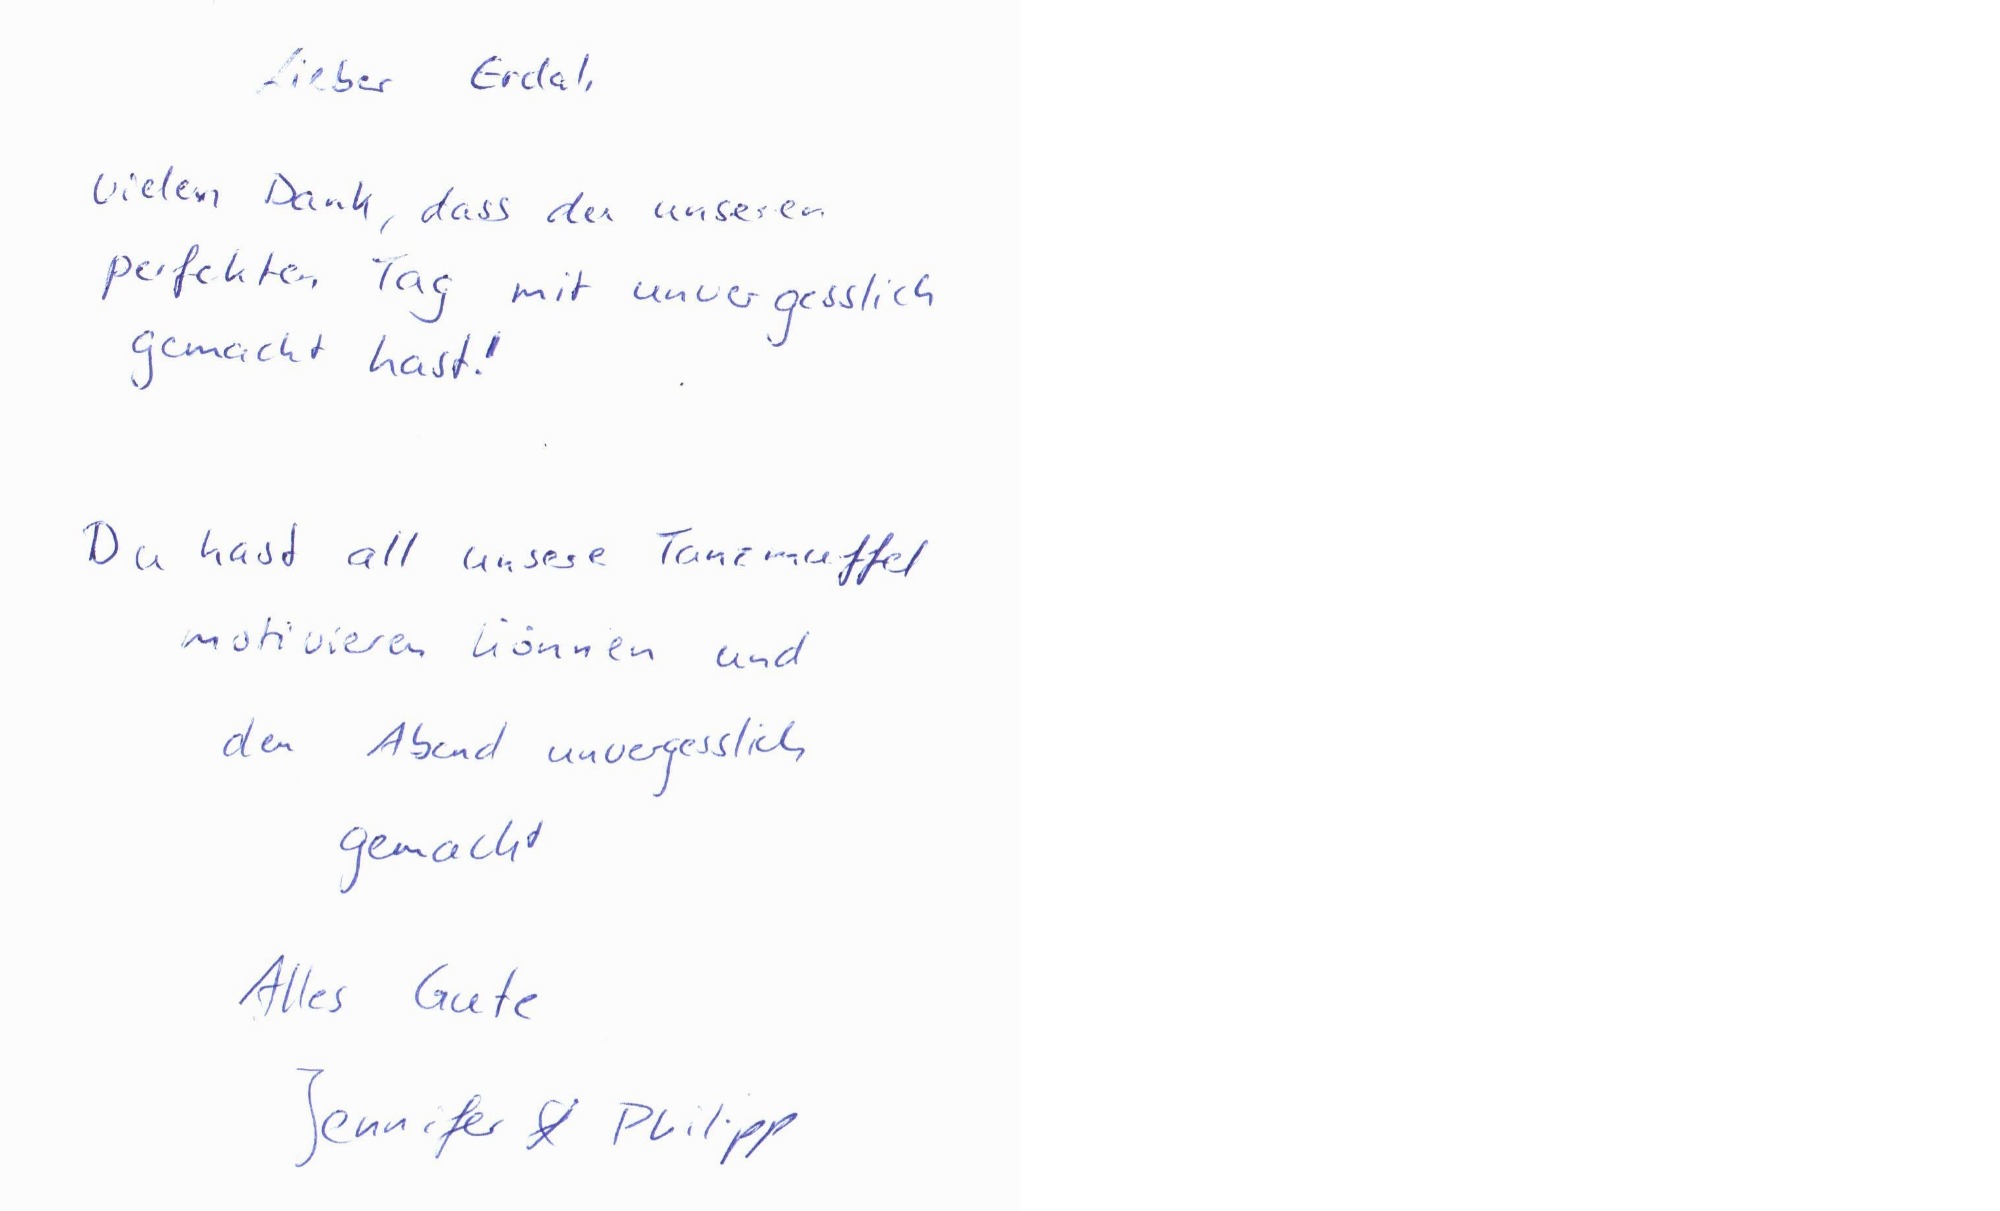 Lieber Erdal,
vielen Dank, dass du unseren
perfekten Tag mit unvergesslich
gemacht hast!
Du hast all unsere Tanzmuffel
motivieren können und
den Abend unvergesslich
gemacht
Alles Gute
Jennifer & Philipp